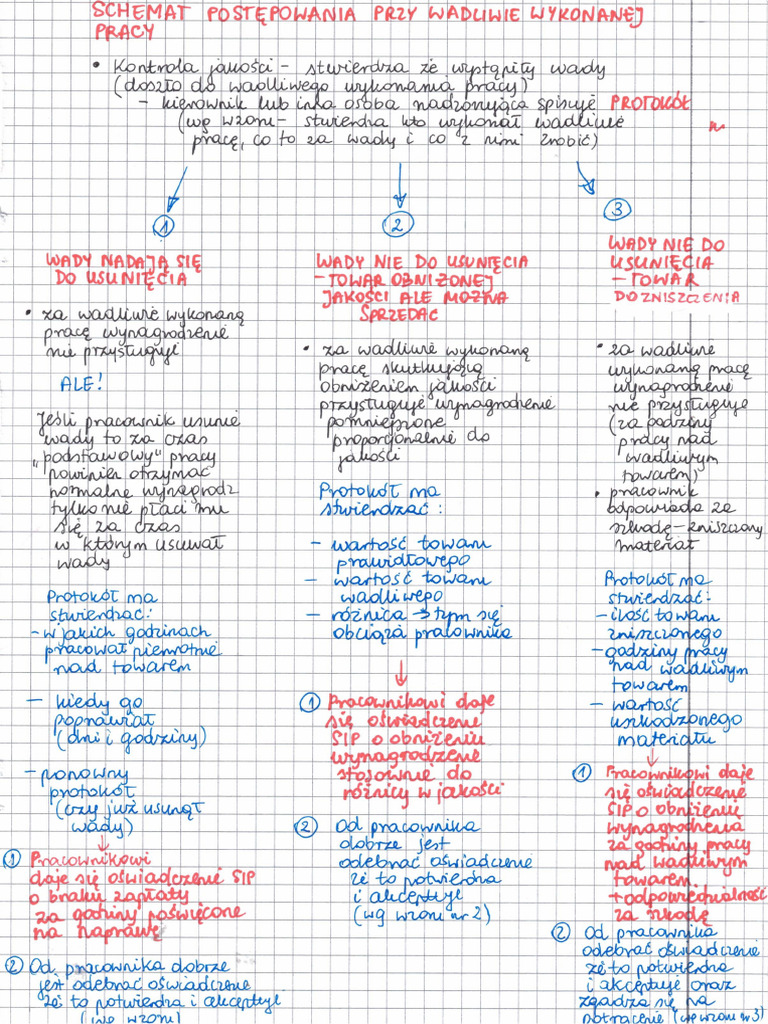 SCHEMAT POSTĘPOWANIA PRZY WADLIWIE WYKONANEJ
PRACY
• Kontrola jakości - stwierdza że wystąpiły wady
(doszło do wadliwego wykonania pracy)
- kierownik lub inna osoba nadzorująca spisuje PROTOKÓŁ
(wg wzoru - stwierdza kto wykonał wadliwie
pracę, co to za wady i co z nimi zrobić)
1
WADY NADAJĄ SIĘ
DO USUNIĘCIA
• za wadliwie wykonaną
pracę wynagrodzenie
nie przysługuje
ALE!
Jeśli pracownik usunie
wady to za czas
"podstawowy" pracy
powinien otrzymać
normalne wynagrodz
tylko nie płaci mu
się za czas
w którym usuwał
wady
Protokół ma
stwierdzać:
- w jakich godzinach
pracował pierwotnie
nad towarem
- kiedy go
poprawiał
(dni i godziny)
- ponowny
protokół
(czy już usunął
wady)
1 Pracownikowi
daje się oświadczenie SIP
o braku zapłaty
za godziny poświęcone
na naprawę
2 Od pracownika dobrze
jest odebrać oświadczenie
że to potwierdza i akceptuje
(wg wzoru)
2
WADY NIE DO USUNIĘCIA
- TOWAR OBNIŻONEJ
JAKOŚCI ALE MOŻNA
SPRZEDAĆ
• za wadliwie wykonaną
pracę skutkującą
obniżeniem jakości
przysługuje wynagrodzenie
pomniejszone
proporcjonalnie do
jakości
Protokół ma
stwierdzać:
- wartość towaru
prawidłowego
- wartość towaru
wadliwego
- różnica → tym się
obciąża pracownika
1 Pracownikowi daje
się oświadczenie
SIP o obniżeniu
wynagrodzenie
stosownie do
różnicy w jakości
2 Od pracownika
dobrze jest
odebrać oświadczenie
że to potwierdza
i akceptuje
(wg wzoru nr 2)
3
WADY NIE DO
USUNIĘCIA
- TOWAR
DO ZNISZCZENIA
• za wadliwie
wykonaną pracę
wynagrodzenie
nie przysługuje
(za godziny
pracy nad
wadliwym
towarem)
• pracownik
odpowiada za
szkodę - zniszczony
materiał
Protokół ma
stwierdzać:
- ilość towaru
zniszczonego
- godziny pracy
nad wadliwym
towarem
- wartość
uszkodzonego
materiału
1 Pracownikowi daje
się oświadczenie
SIP o obniżeniu
wynagrodzenia
za godziny pracy
nad wadliwym
towarem
+ odpowiedzialność
za szkodę
2 Od pracownika
odebrać oświadczenie
że to potwierdza
i akceptuje oraz
zgadza się na
potrącenie (wg wzoru nr 3)